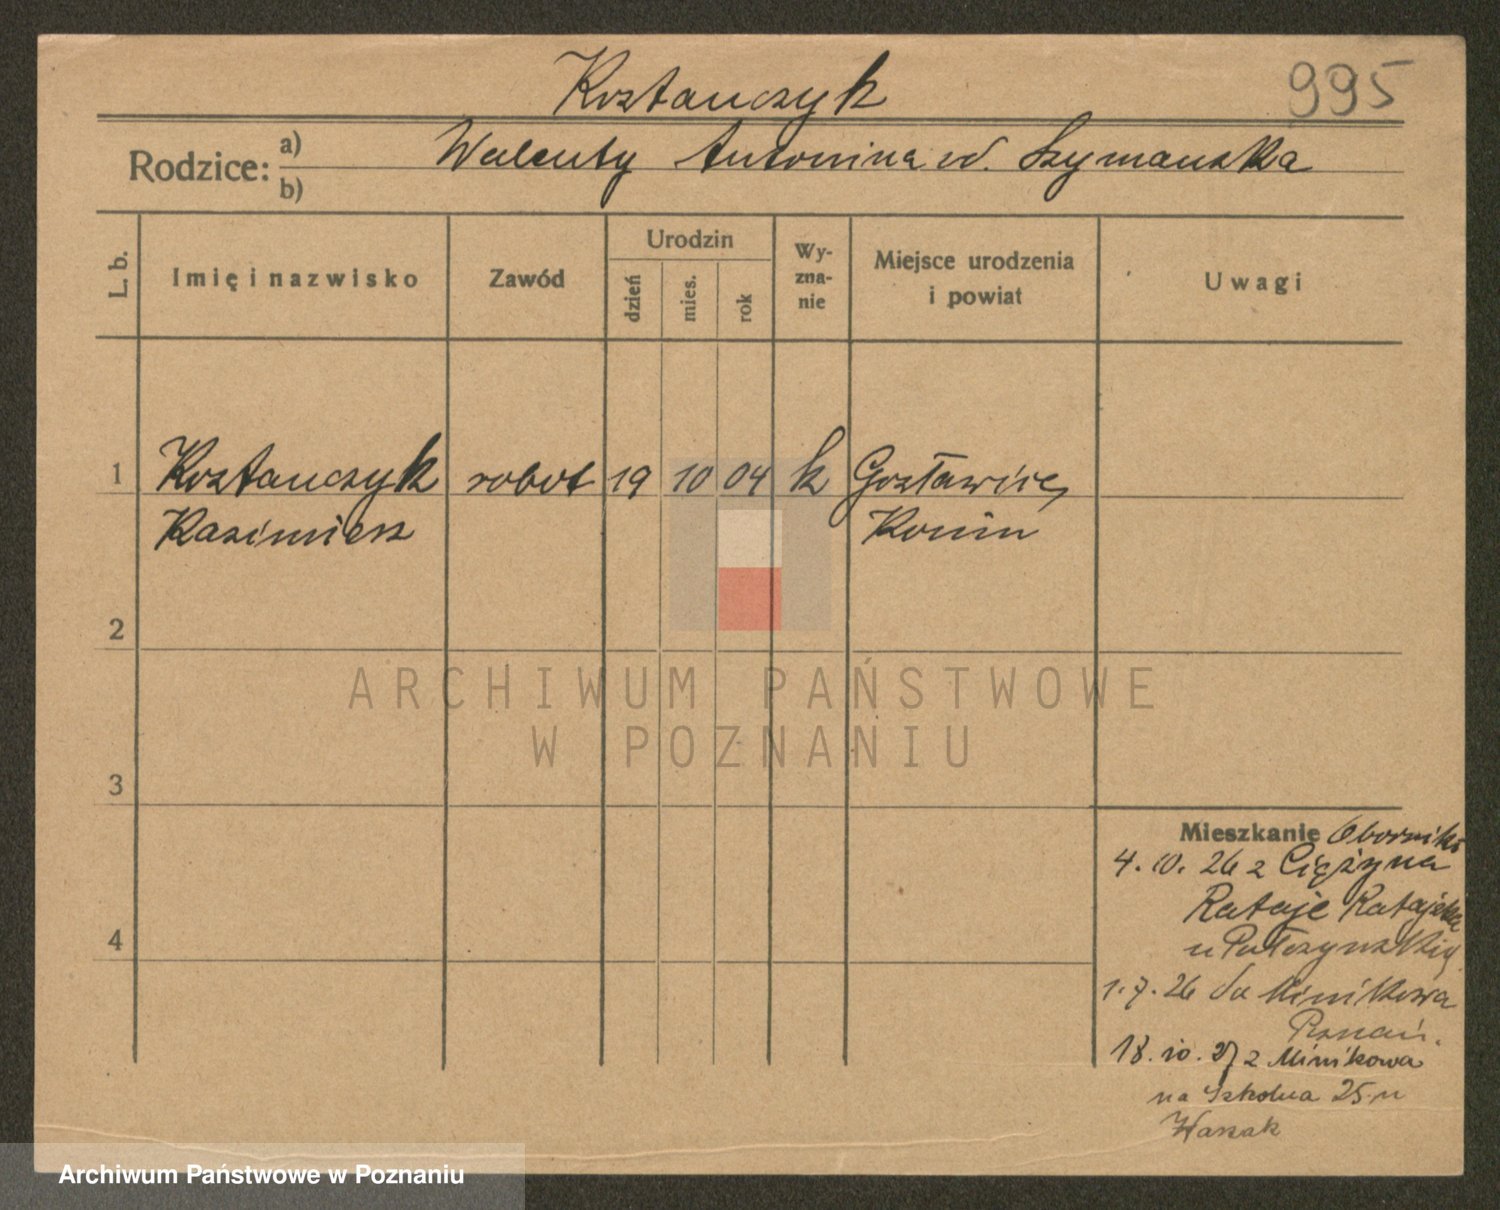 Kostańczyk
995
Rodzice: a) Walenty Antonina vd. Szymańska
b)
L. b.
Imię i nazwisko
Zawód
Urodzin
dzień
mies.
rok
Wy-
zna-
nie
Miejsce urodzenia
i powiat
Uwagi
1 Kostańczyk robot 19 10 04 k Gosławice,
Kazimierz Konin
2
3
4
ARCHIWUM PAŃSTWOWE
W POZNANIU
Mieszkanie Oborniki
4. 10. 26 z Ciężyna
Rataje
u
1. 7. 26 do Minikowa
Poznań.
18. 10. 27 z Minikowa
na Szkolna 25 u
Archiwum Państwowe w Poznaniu